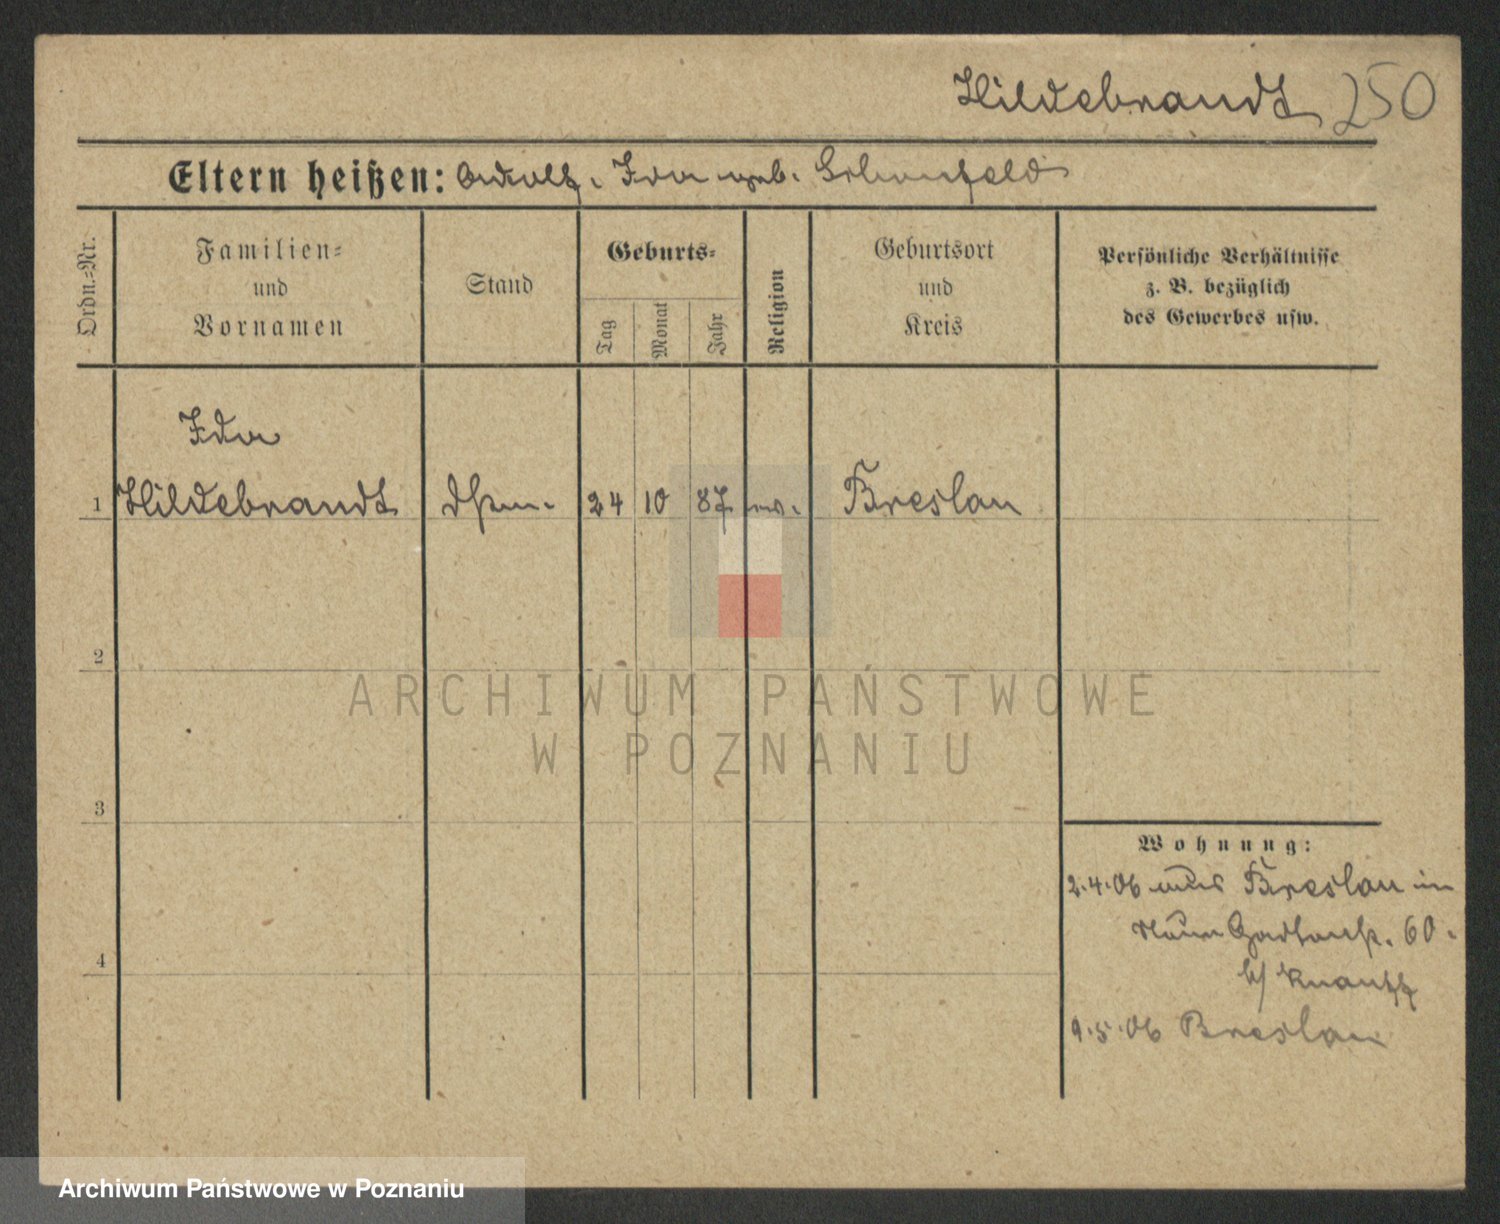 Hildebrandt 250
Eltern heißen: Adolf. Ida geb. Schonfeld
Ordn.=Nr.
Familien=
und
Vornamen
Stand
Geburts=
Tag
Monat
Jahr
Religion
Geburtsort
und
Kreis
Persönliche Verhältnisse
z. B. bezüglich
des Gewerbes usw.
Ida
1 Hildebrandt 24 10 87 ev. Breslau
2
ARCHIWUM PAŃSTWOWE
W POZNANIU
3
Wohnung:
2.4.06 aus Breslau in
60.
4
b/ Knauff
9.5.06 Breslau
Archiwum Państwowe w Poznaniu